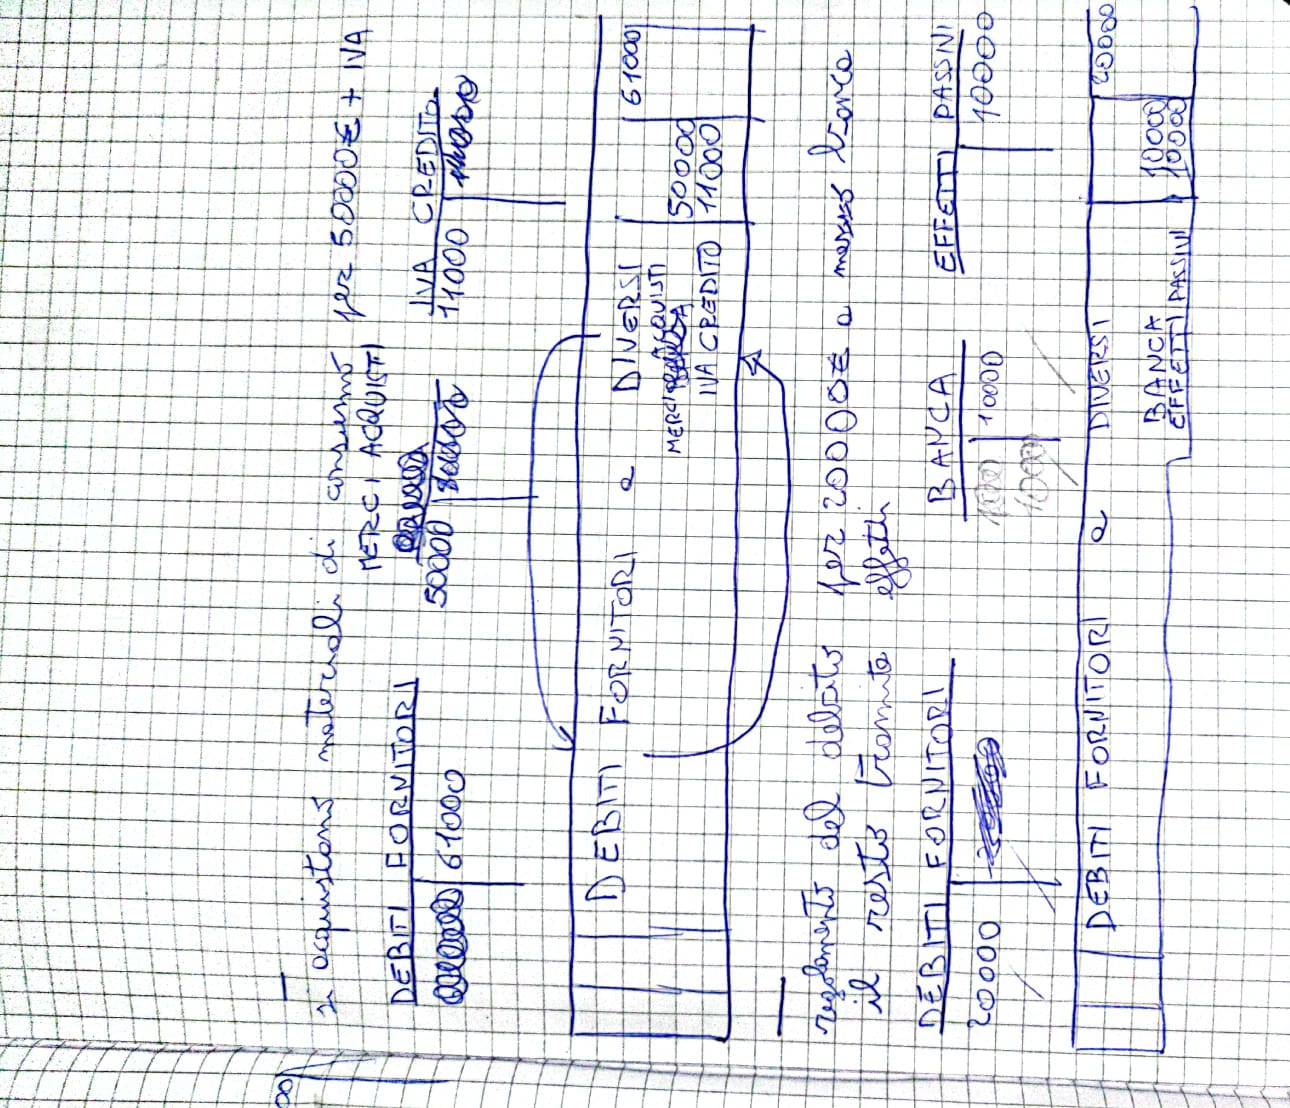 si acquistano materiali di consumo per 50000€ + IVA
DEBITI FORNITORI MERCI ACQUISTI IVA CREDITO
61000 50000 11000
DEBITI FORNITORI a DIVERSI 61000
MERCI ACQUISTI 50000
IVA CREDITO 11000
regolamento del debito per 20000€ a mezzo banca
il resto tramite effetti
DEBITI FORNITORI BANCA EFFETTI PASSIVI
20000 10000 10000
DEBITI FORNITORI a DIVERSI 20000
BANCA 10000
EFFETTI PASSIVI 10000